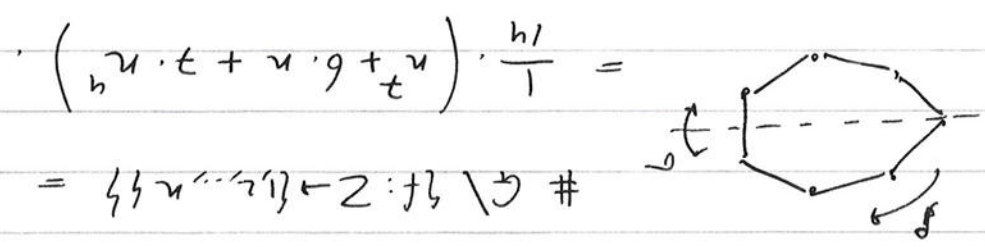 # G\ {f: Z → {1,2,...,n}} =
= 1/14 · (n^7 + 6·n + 7·n^4).